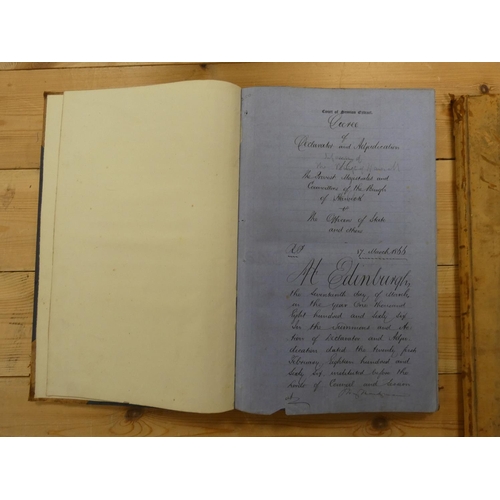 Court of Session Extract.
Decree
of
Declarator and Adjudication
The Provost Magistrates and
Community of the Burgh
of Hawick
The Officers of State
and others
17 March 1866
At Edinburgh,
the Seventeenth day of March
in the year One thousand
Eight hundred and sixty six
In the Summons and Ac
tion of Declarator and Adju
dication dated the twenty first
February Eighteen hundred and
sixty six instituted before the
Lords of Council and Session